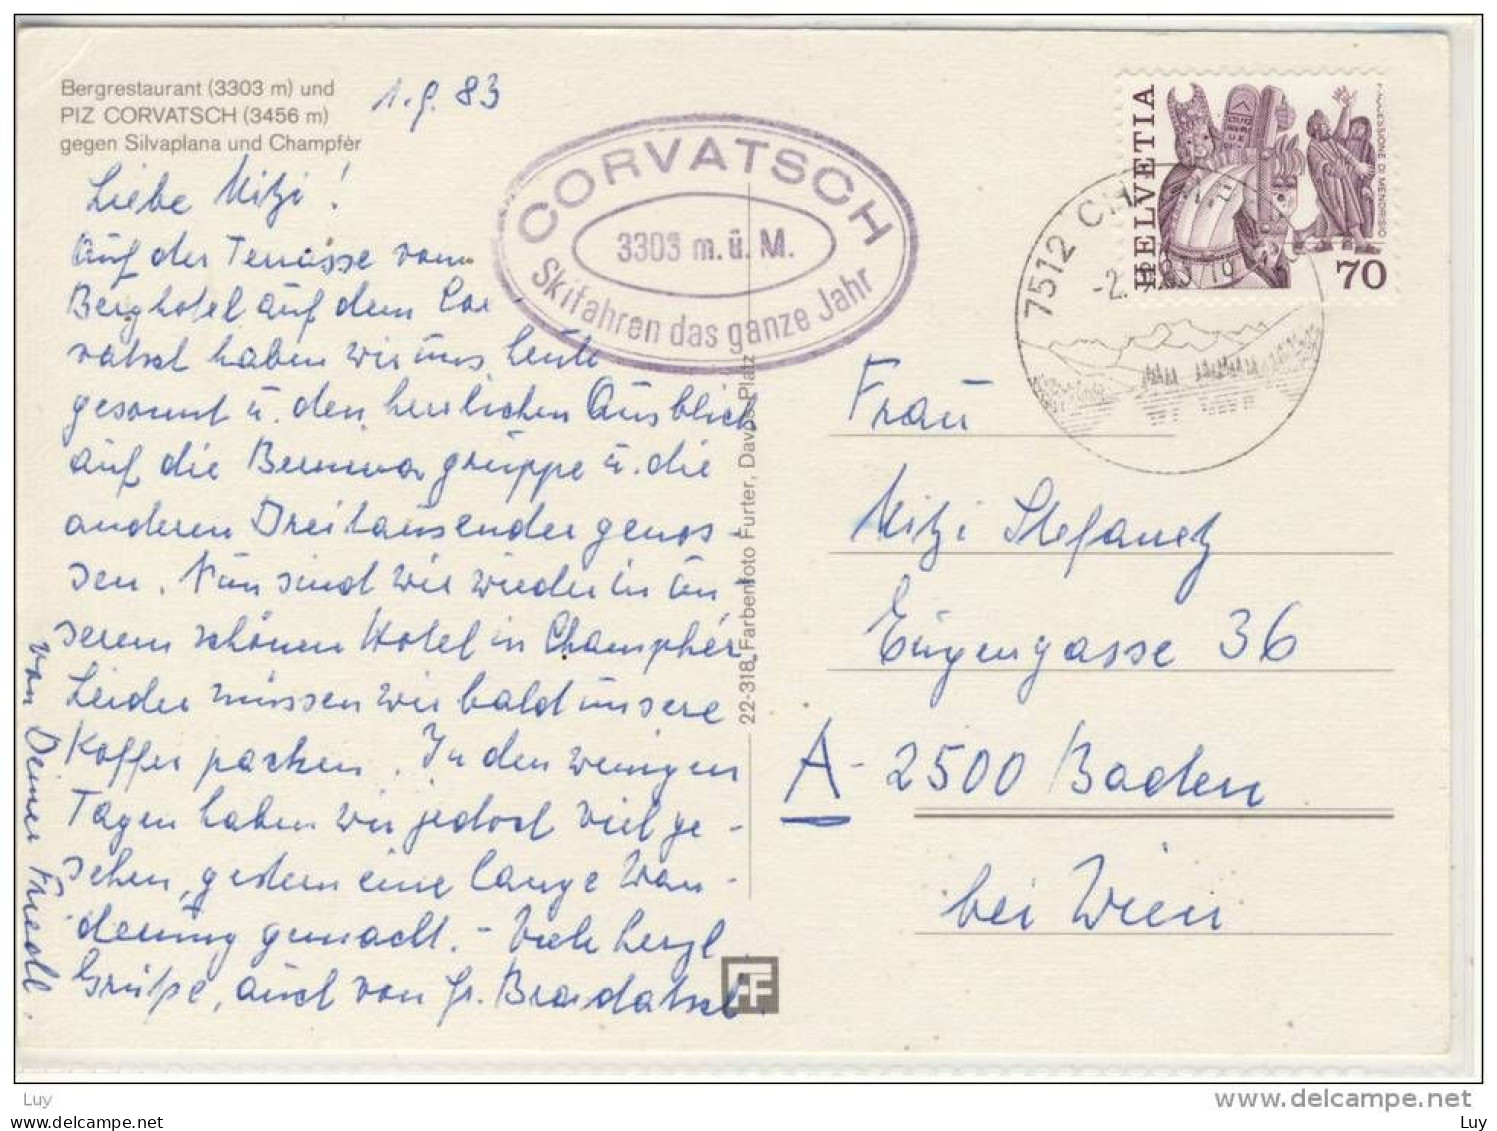 Bergrestaurant (3303 m) und
PIZ CORVATSCH (3456 m)
gegen Silvaplana und Champfèr
1.9.83
CORVATSCH
3303 m.ü.M.
Skifahren das ganze Jahr
HELVETIA
PROCESSIONE DI MENDRISIO
70
7512 CH
-2.
Liebe Mitzi!
Auf der Terrasse vom
Berghotel auf dem Cor
vatsch haben wir uns heute
gesonnt u. den herrlichen Ausblick
auf die Berninagruppe u. die
anderen Dreitausender genos-
sen. Nun sind wir wieder in un
serem schönen Hotel in Champhér
Leider müssen wir bald unsere
Koffer packen. In den wenigen
Tagen haben wir jedoch viel ge-
sehen, gestern eine lange Wan-
derung gemacht. - Viele herzl
Grüße, auch von Fr. Bradatsch
von Deiner Friedl.
22-318 Farbenfoto Furter, Davos-Platz
FF
Frau
Mitzi Stefanetz
Eugengasse 36
A-2500 Baden
bei Wien
Luy
www.delcampe.net
Luy
Luy